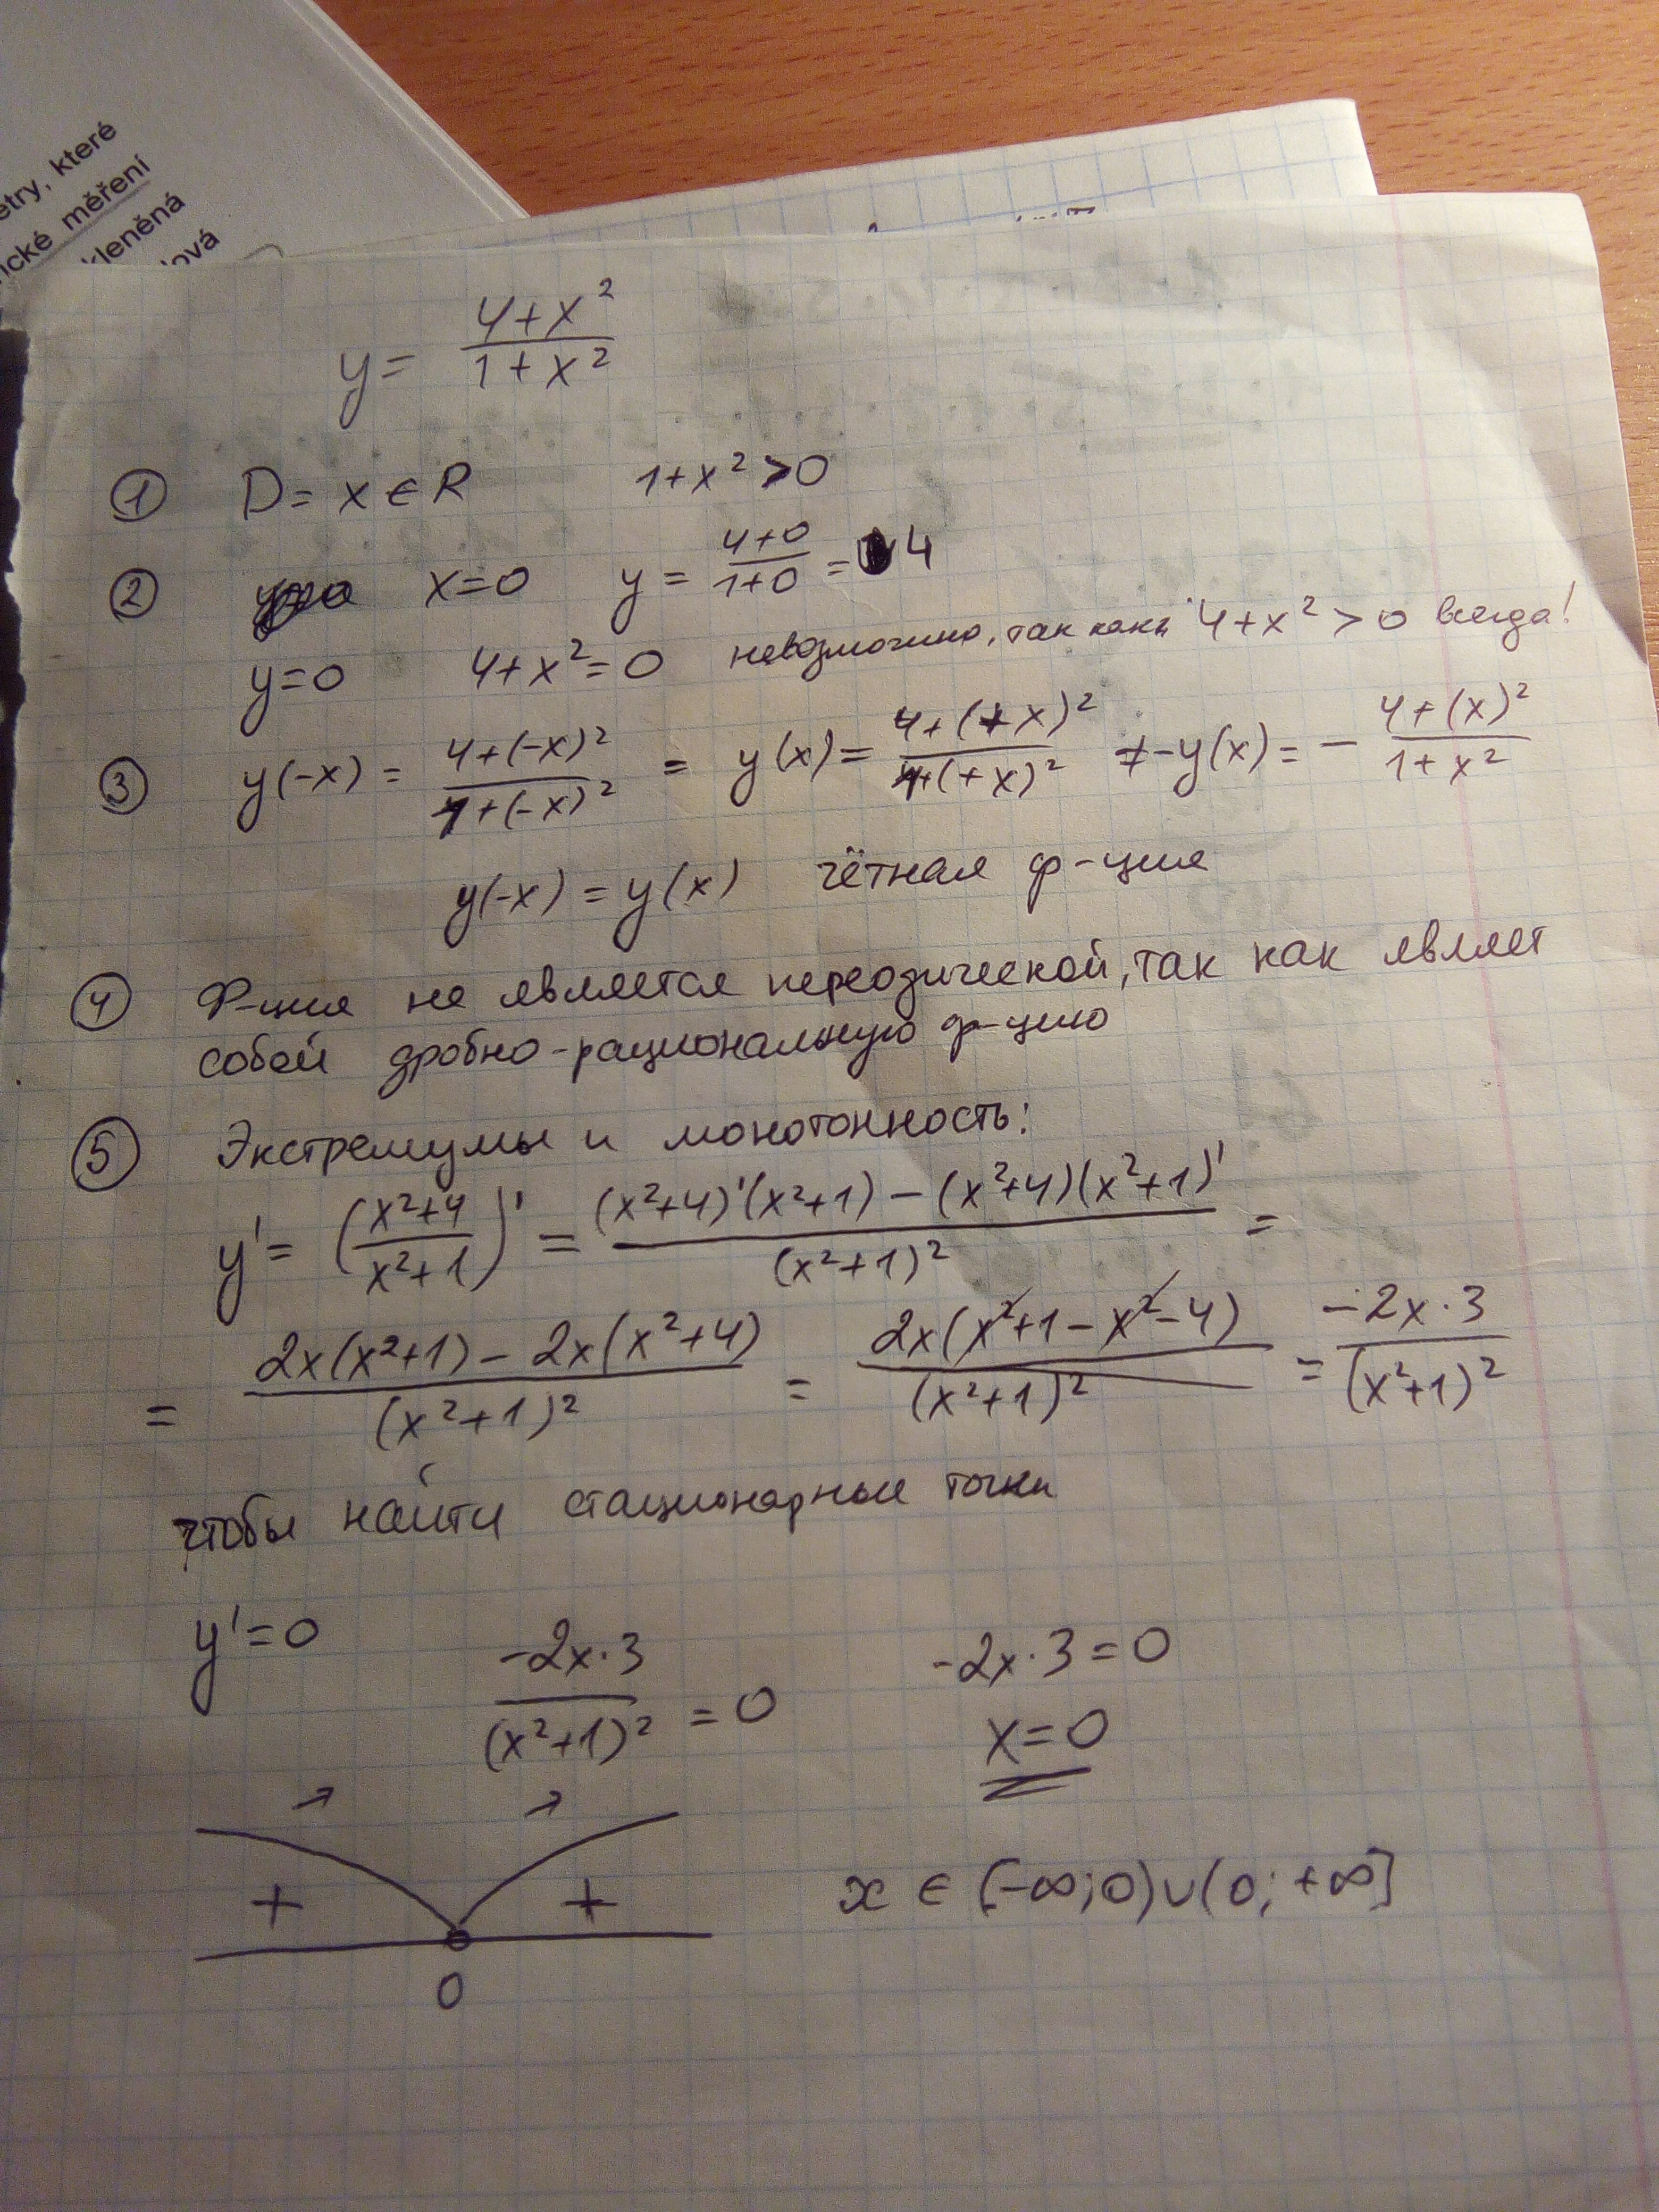 etry, které
ické měření
kleněná
ová
y = (4+x²)/(1+x²)
① D = x ∈ R 1+x² > 0
② x=0 y = (4+0)/(1+0) = 4
y=0 4+x²=0 невозможно, так как 4+x² > 0 всегда!
③ y(-x) = (4+(-x)²)/(1+(-x)²) = y(x) = (4+(+x)²)/(1+(+x)²) ≠ -y(x) = - (4+(x)²)/(1+x²)
y(-x) = y(x) чётная ф-ция
④ Ф-ция не является переодической, так как являет
собой дробно-рациональную ф-цию
⑤ Экстремумы и монотонность:
y' = ((x²+4)/(x²+1))' = ((x²+4)'(x²+1) - (x²+4)(x²+1)')/(x²+1)² =
= (2x(x²+1) - 2x(x²+4))/(x²+1)² = (2x(x²+1-x²-4))/(x²+1)² = (-2x·3)/(x²+1)²
чтобы найти стационарные точки
y'=0 (-2x·3)/(x²+1)² = 0 -2x·3=0
x=0
↗ ↗
+ + x ∈ [-∞;0)∪(0;+∞]
0